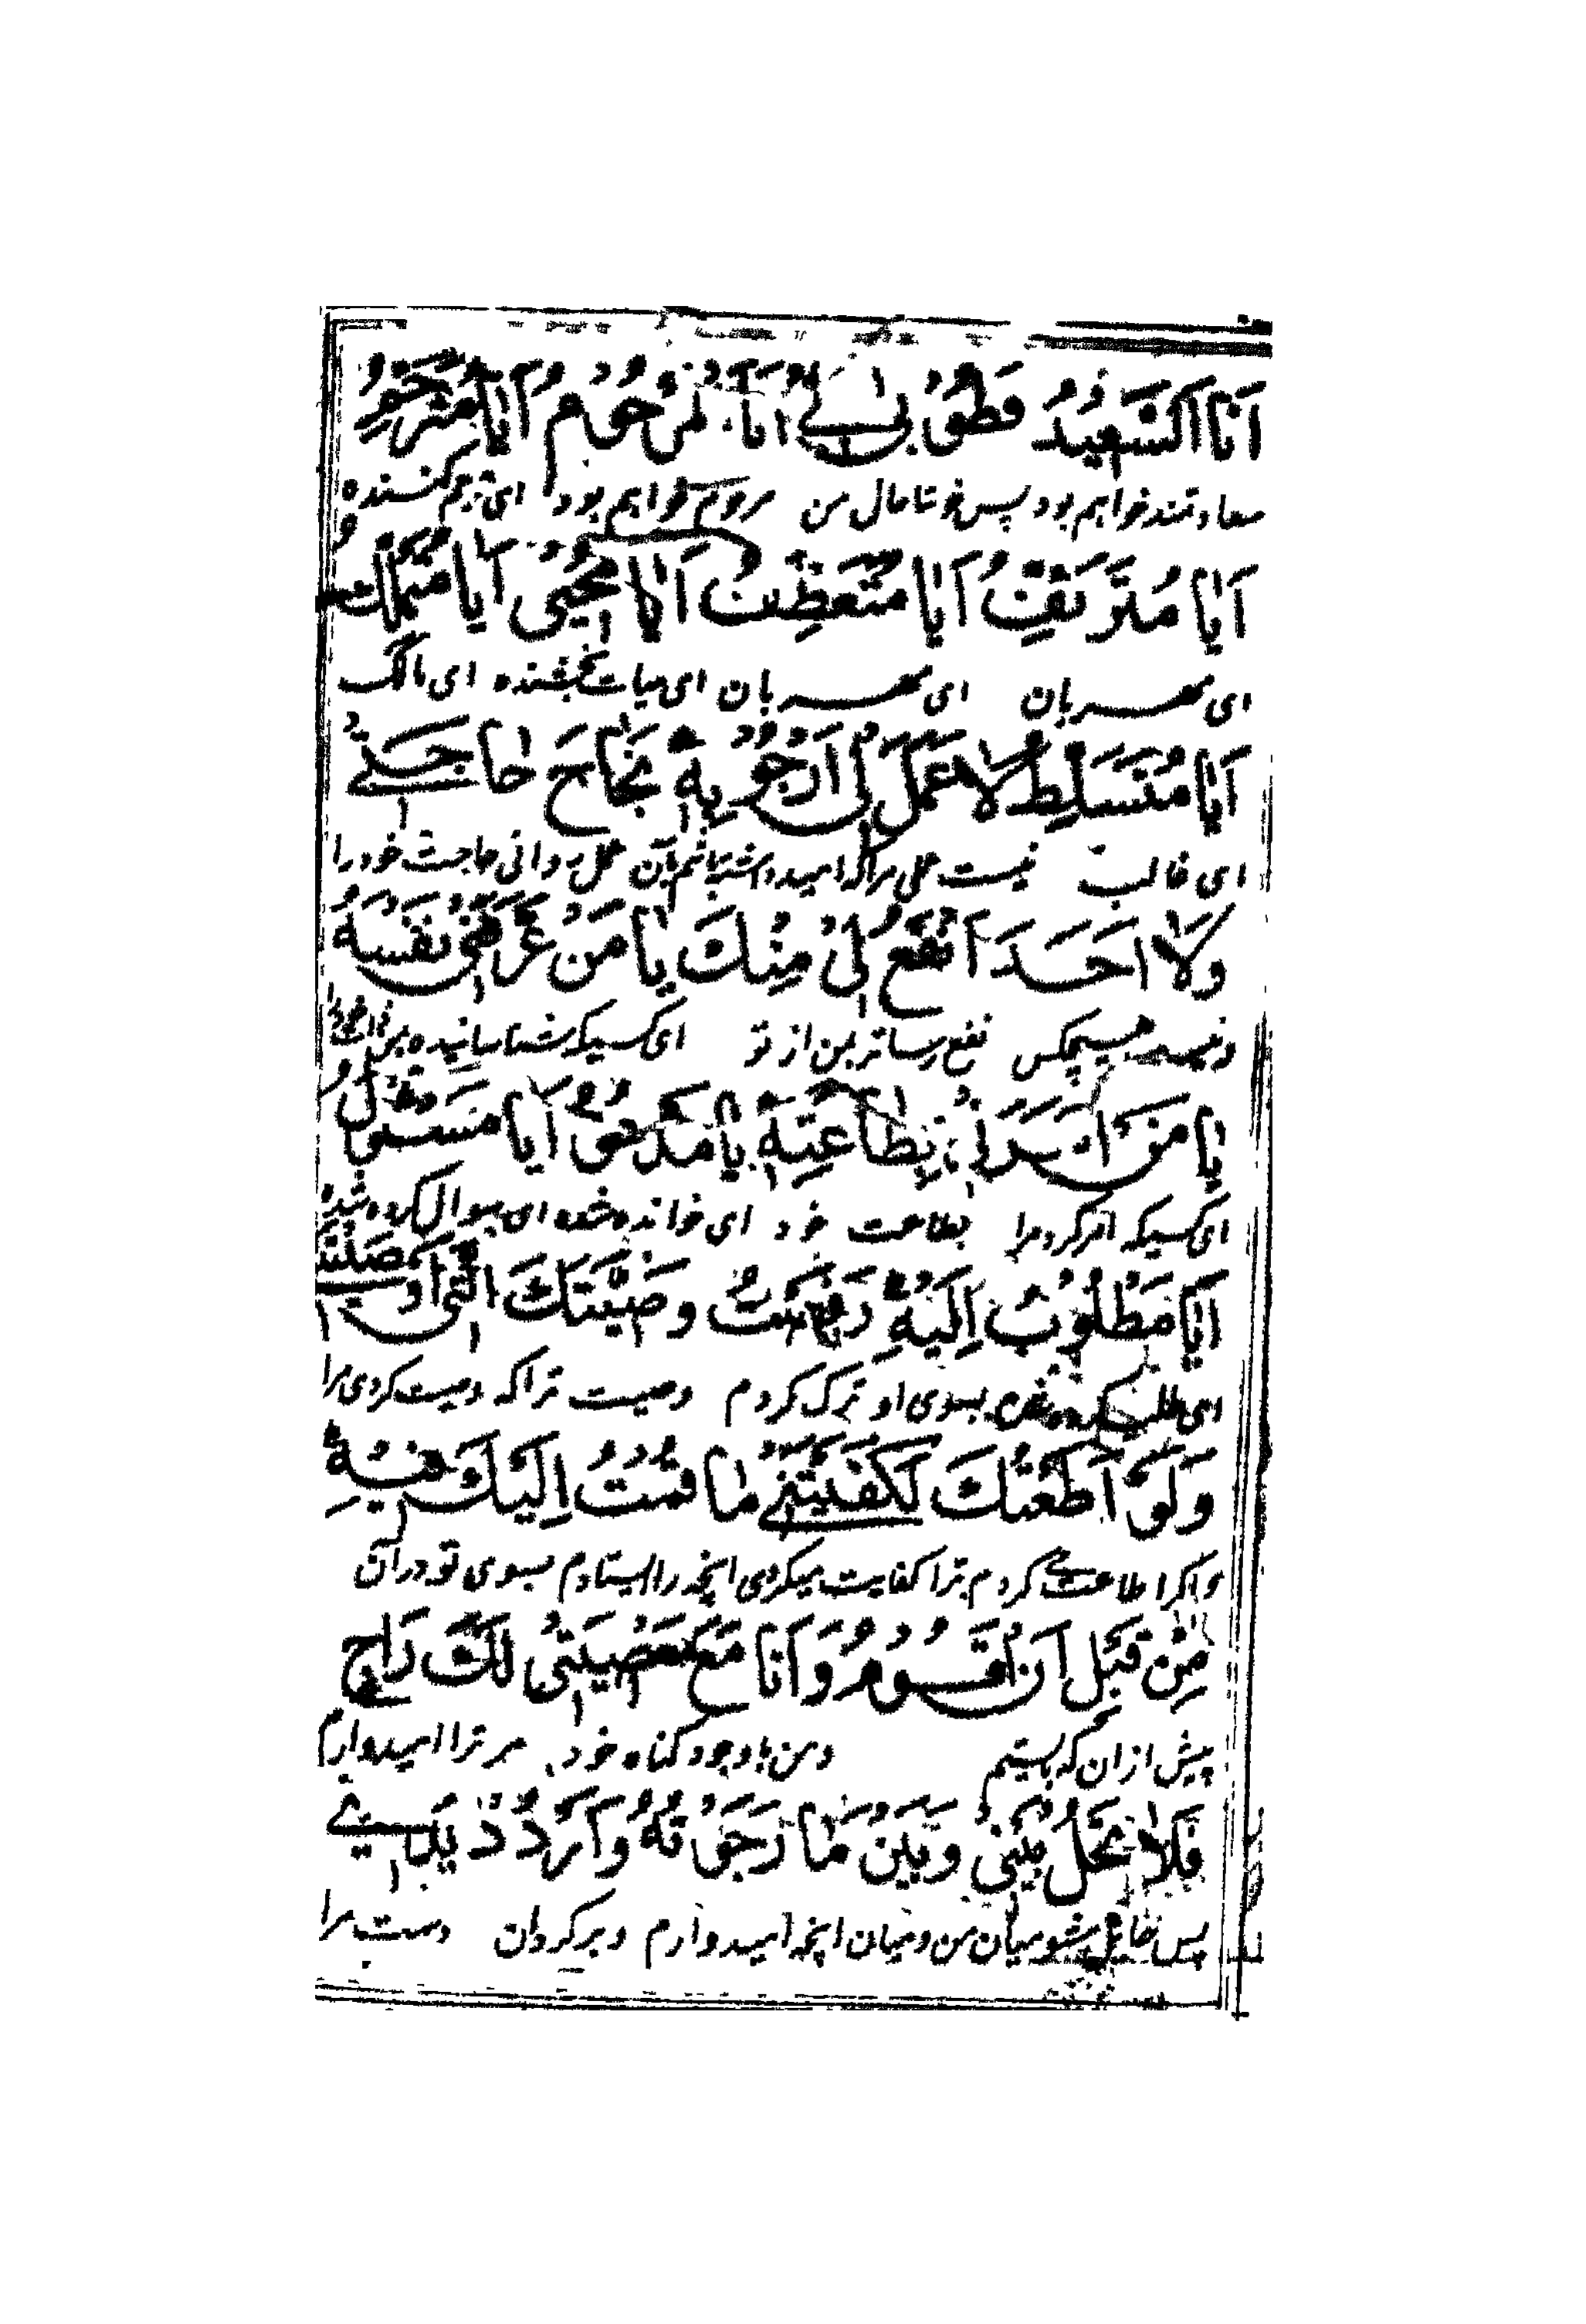 اَنَا السَّعِيْدُ فَطُوْبٰى لِيْ اَنَا الْمَرْحُوْمُ اَيَا مُتَرَحِّمُ
سعادتمند خواہم بود پس خوشا حال من مرحوم خواہم بود ای ترحم کنندہ
اَيَا مُتَرَئِّفُ اَيَا مُتَعَطِّفُ اَيَا مُحْيِىْ اَيَا مُتَمَلِّكُ
ای مہربان ای مہربان ای حیات بخشندہ ای مالک
اَيَا مُتَسَلِّطُ لَا عَمَلَ لِىْ اَرْجُوْ بِهٖ نَجَاحَ حَاجَتِىْ
ای غالب نیست عملی مرا کہ امید داشتہ باشم بآن عمل روائی حاجت خود را
وَلَا اَحَدَ اَنْفَعُ لِىْ مِنْكَ يَا مَنْ عَرَّفَنِىْ نَفْسَهٗ
و نیست ہیچکس نفع رسانتر بمن از تو ای کسیکہ شناسانیدہ بمن
يَا مَنْ اَمَرَنِىْ بِطَاعَتِهٖ يَا مَدْعُوُّ اَيَا مَسْئُوْلُ
ای کسیکہ امر کرد مرا بطاعت خود ای خواندہ شدہ ای سوال کردہ شدہ
اَيَا مَطْلُوْبُ اِلَيْهِ رَفَضْتُ وَصِيَّتَكَ الَّتِىْ اَوْصَيْتَنِىْ
ای طلب کردہ شدہ بسوی او ترک کردم وصیت ترا کہ وصیت کردی مرا
وَلَوْ اَطَعْتُكَ لَكَفَيْتَنِىْ مَا قُمْتُ اِلَيْكَ فِيْهِ
و اگر اطاعت کردم ترا کفایت میکردی انچہ را ایستادم بسوی تو در آن
مِنْ قَبْلِ اَنْ اَقُوْمُ وَاَنَا مَعَ مَعْصِيَتِىْ لَكَ رَاجٍ
پیش از ان کہ بایستم و من با وجود گناہ خود مر ترا امیدوارم
فَلَا تَحُلْ بَيْنِىْ وَبَيْنَ مَا رَجَوْتُهٗ وَارْدُدْ يَدِىْ
پس حایل مشو میان من و میان انچہ امیدوارم و برگردان دست مرا